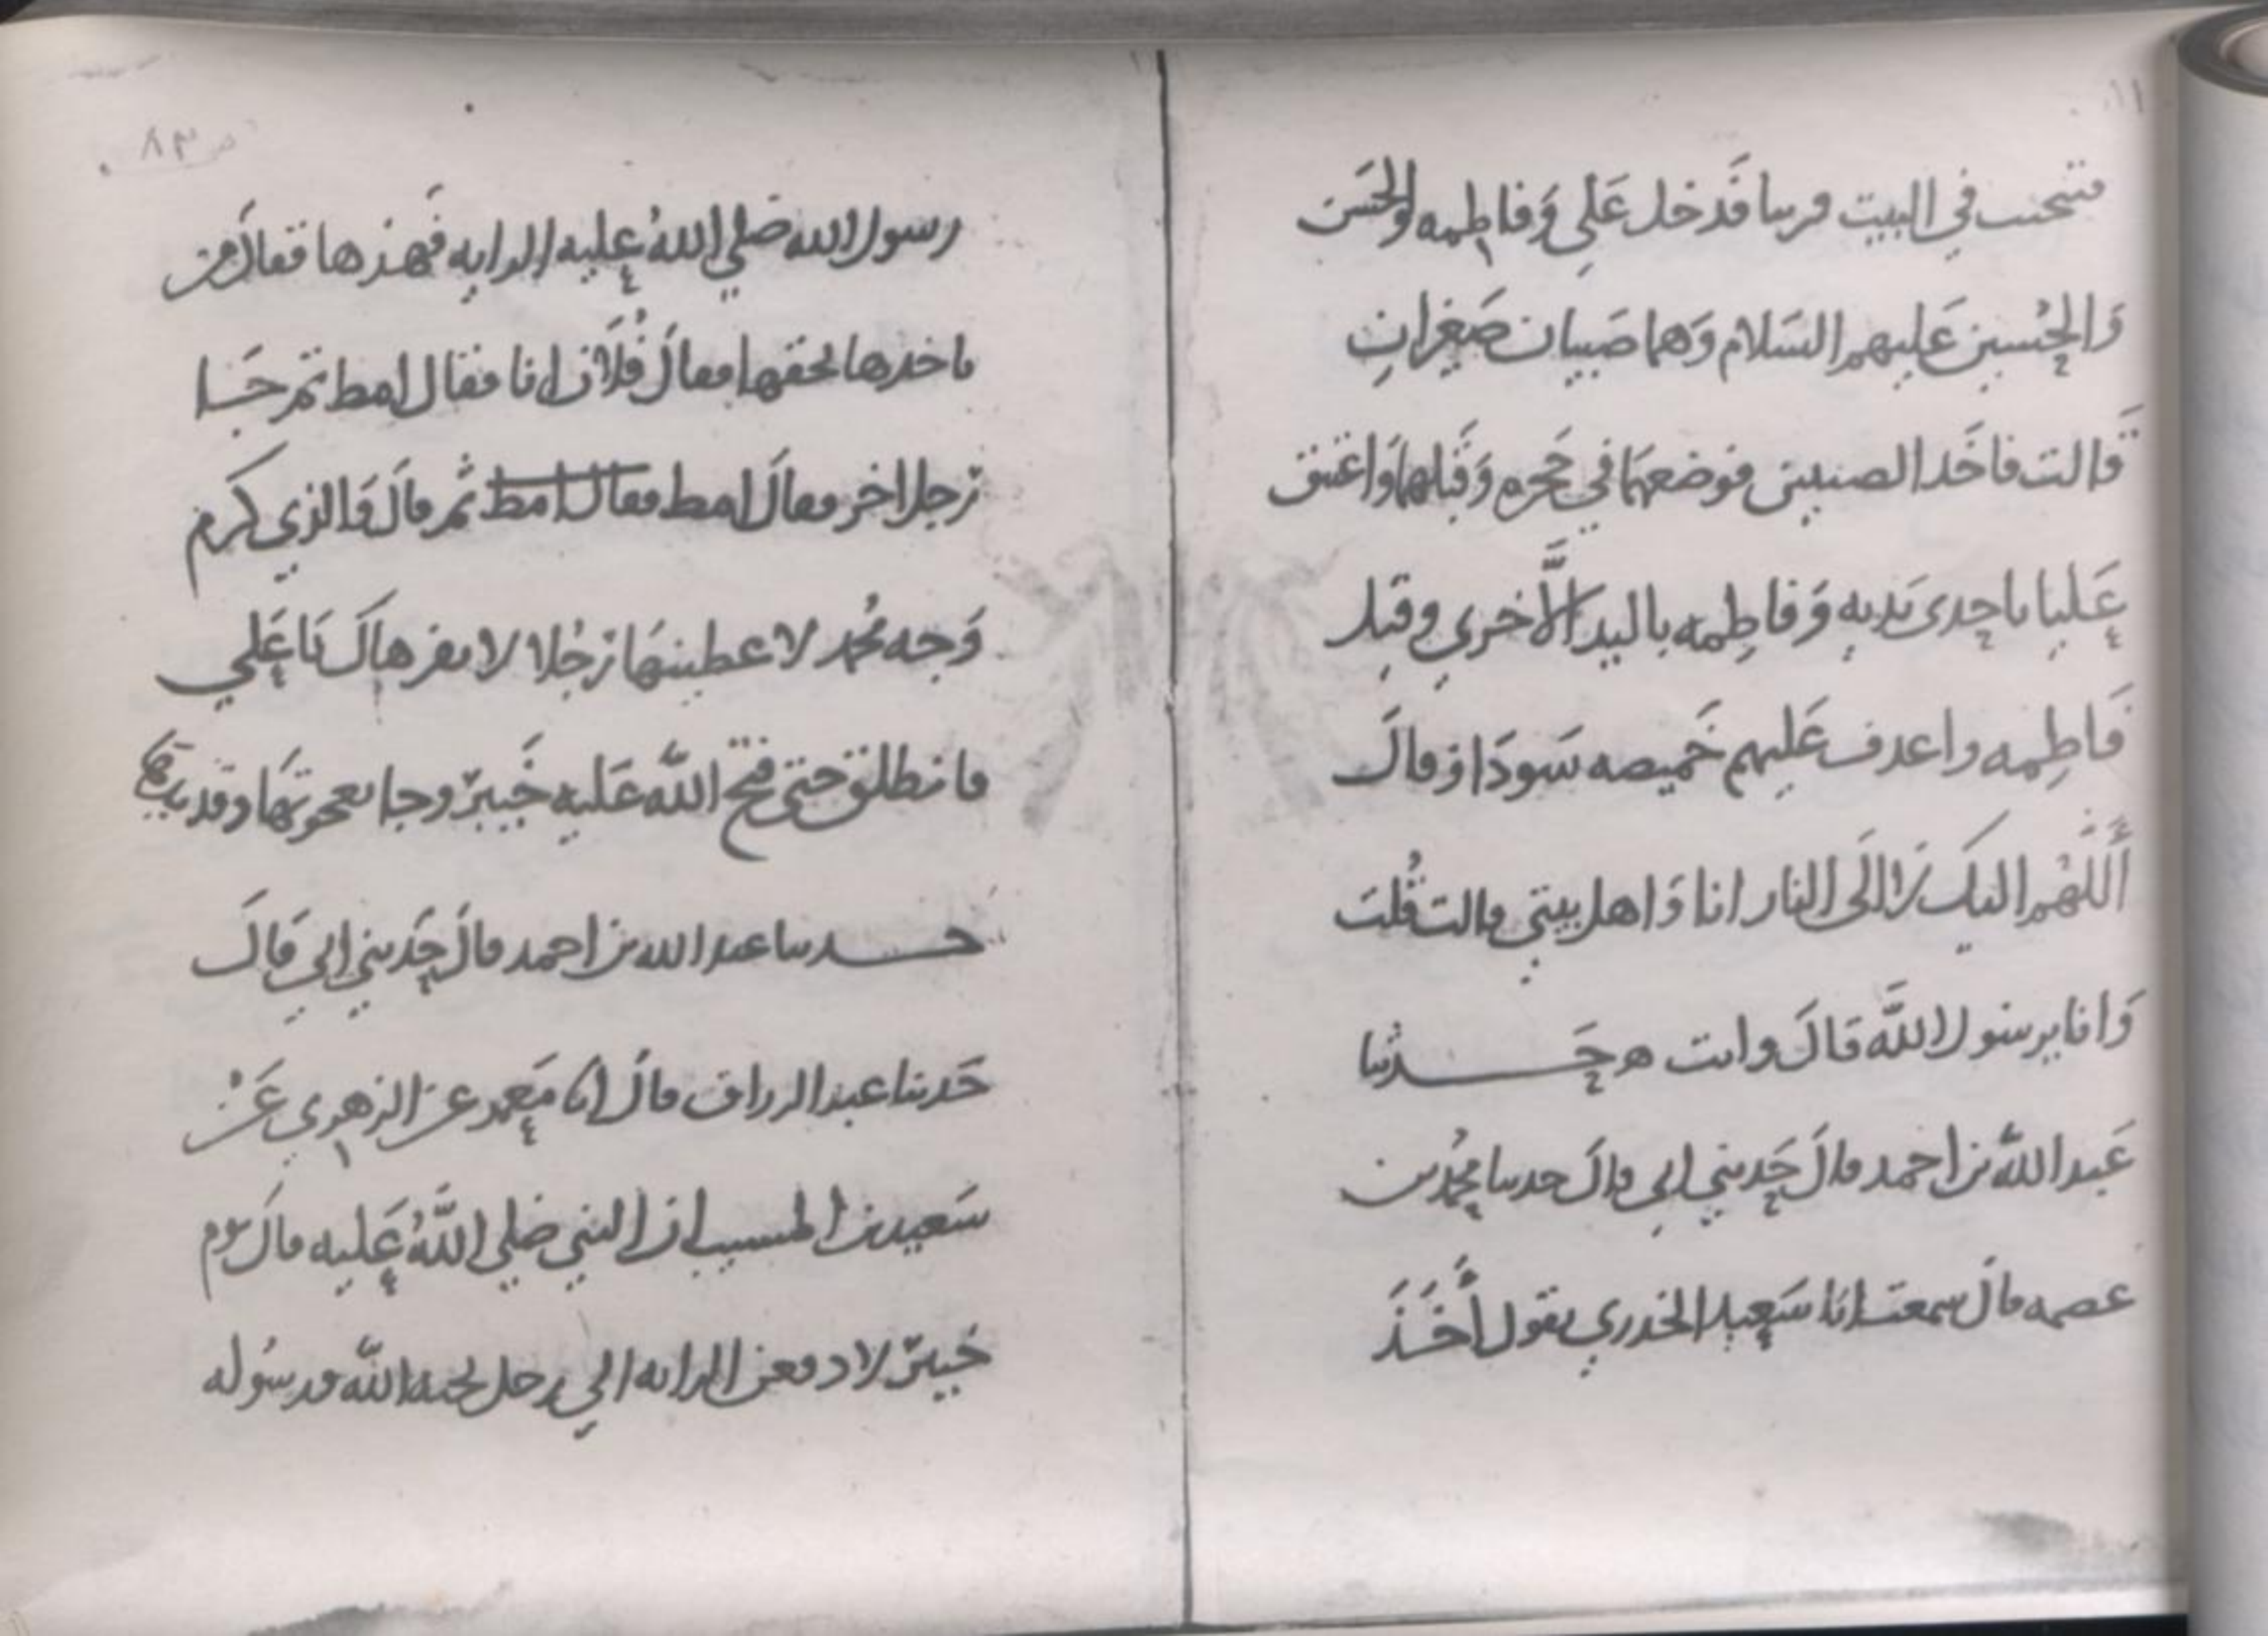 فتنحت في البيت قريبا فدخل علي وفاطمه والحسن
والحسين عليهم السلام وهما صبيان صغيران
قالت فاخذ الصبيين فوضعهما في حجره وقبلهما واعتنق
عليا باحدى يديه وفاطمه باليد الاخرى وقبل
فاطمه واغدف عليهم خميصه سودا وقال
اللهم اليك لا الى النار انا واهل بيتي قالت قلت
وانا يرسول الله قال وانت ه حدثنا
عبد الله بن احمد قال حدثني ابي قال حدثنا محمد بن
عصمه قال سمعت ابا سعيد الخدري يقول اخذ
٨٣
رسول الله صلى الله عليه الرايه فهزها فقال من
ياخذها بحقها فقال فلان انا فقال امط ثم جا
رجل اخر فقال امط فقال امط ثم قال والذي كرم
وجه محمد لاعطينها رجلا لا يفر هاك يا علي
فانطلق حتى فتح الله عليه خيبر وجا بعجوتها وقديدها
حدثنا عبد الله بن احمد قال حدثني ابي قال
حدثنا عبد الرزاق قال انا معمر عن الزهري عن
سعيد بن المسيب ان النبي صلى الله عليه قال يوم
خيبر لادفعن الرايه الى رجل يحبه الله ورسوله